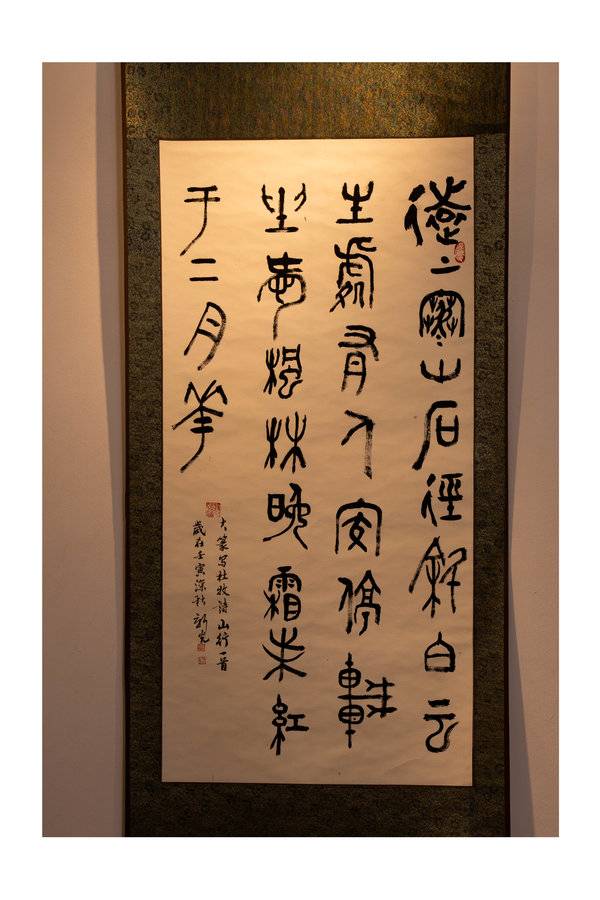 遠上寒山石徑斜白云
生處有人家停車
坐愛楓林晚霜葉紅
于二月華
大篆写杜牧诗山行一首
歲在壬寅深秋